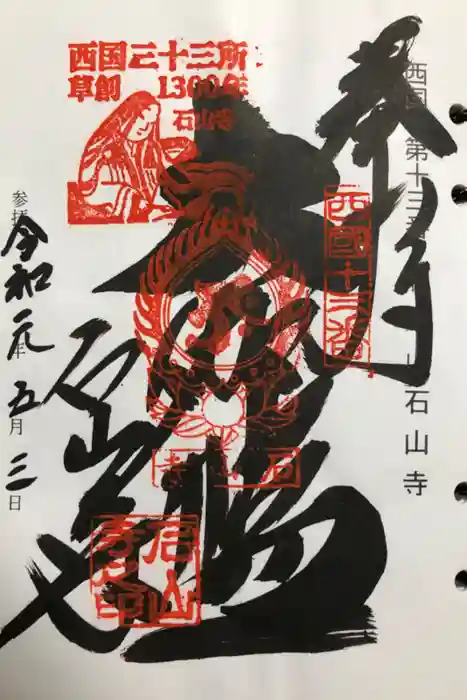 西国 第十三番
石山寺
奉拝
西国三十三所
草創 1300年
石山寺
西國十三番
大伽藍
石山寺
石山寺
石山寺印
参拝 令和元年五月三日